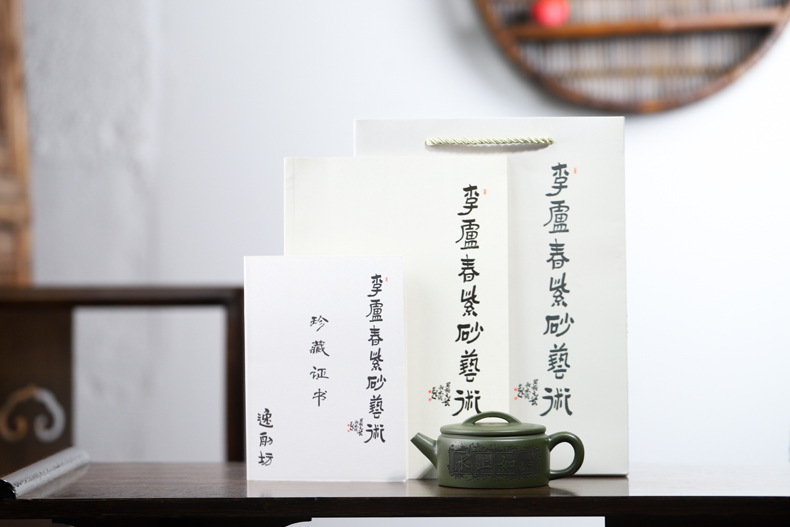 李廬春紫砂藝術
珍藏证书
逸廊坊
李廬春紫砂藝術
李廬春紫砂藝術